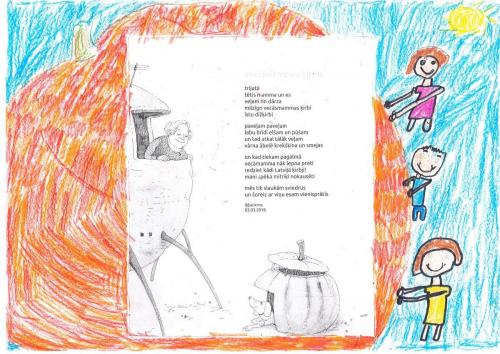 trijatā
tētis mamma un es
veļam no dārza
milzīgo vecāsmammas ķirbi
īstu dižķirbi
paveļam paveļam
labu brīdi elšam un pūšam
un tad atkal tālāk veļam
vārna ābelē krekšķina un smejas
un kad tiekam pagalmā
vecāmamma nāk lepna pretī
redziet kādi Latvijā ķirbji!
mani spēka mitriķi nokausēti
mēs tik slaukām sviedrus
un šoreiz ar viņu esam vienisprātis
03.03.2016.